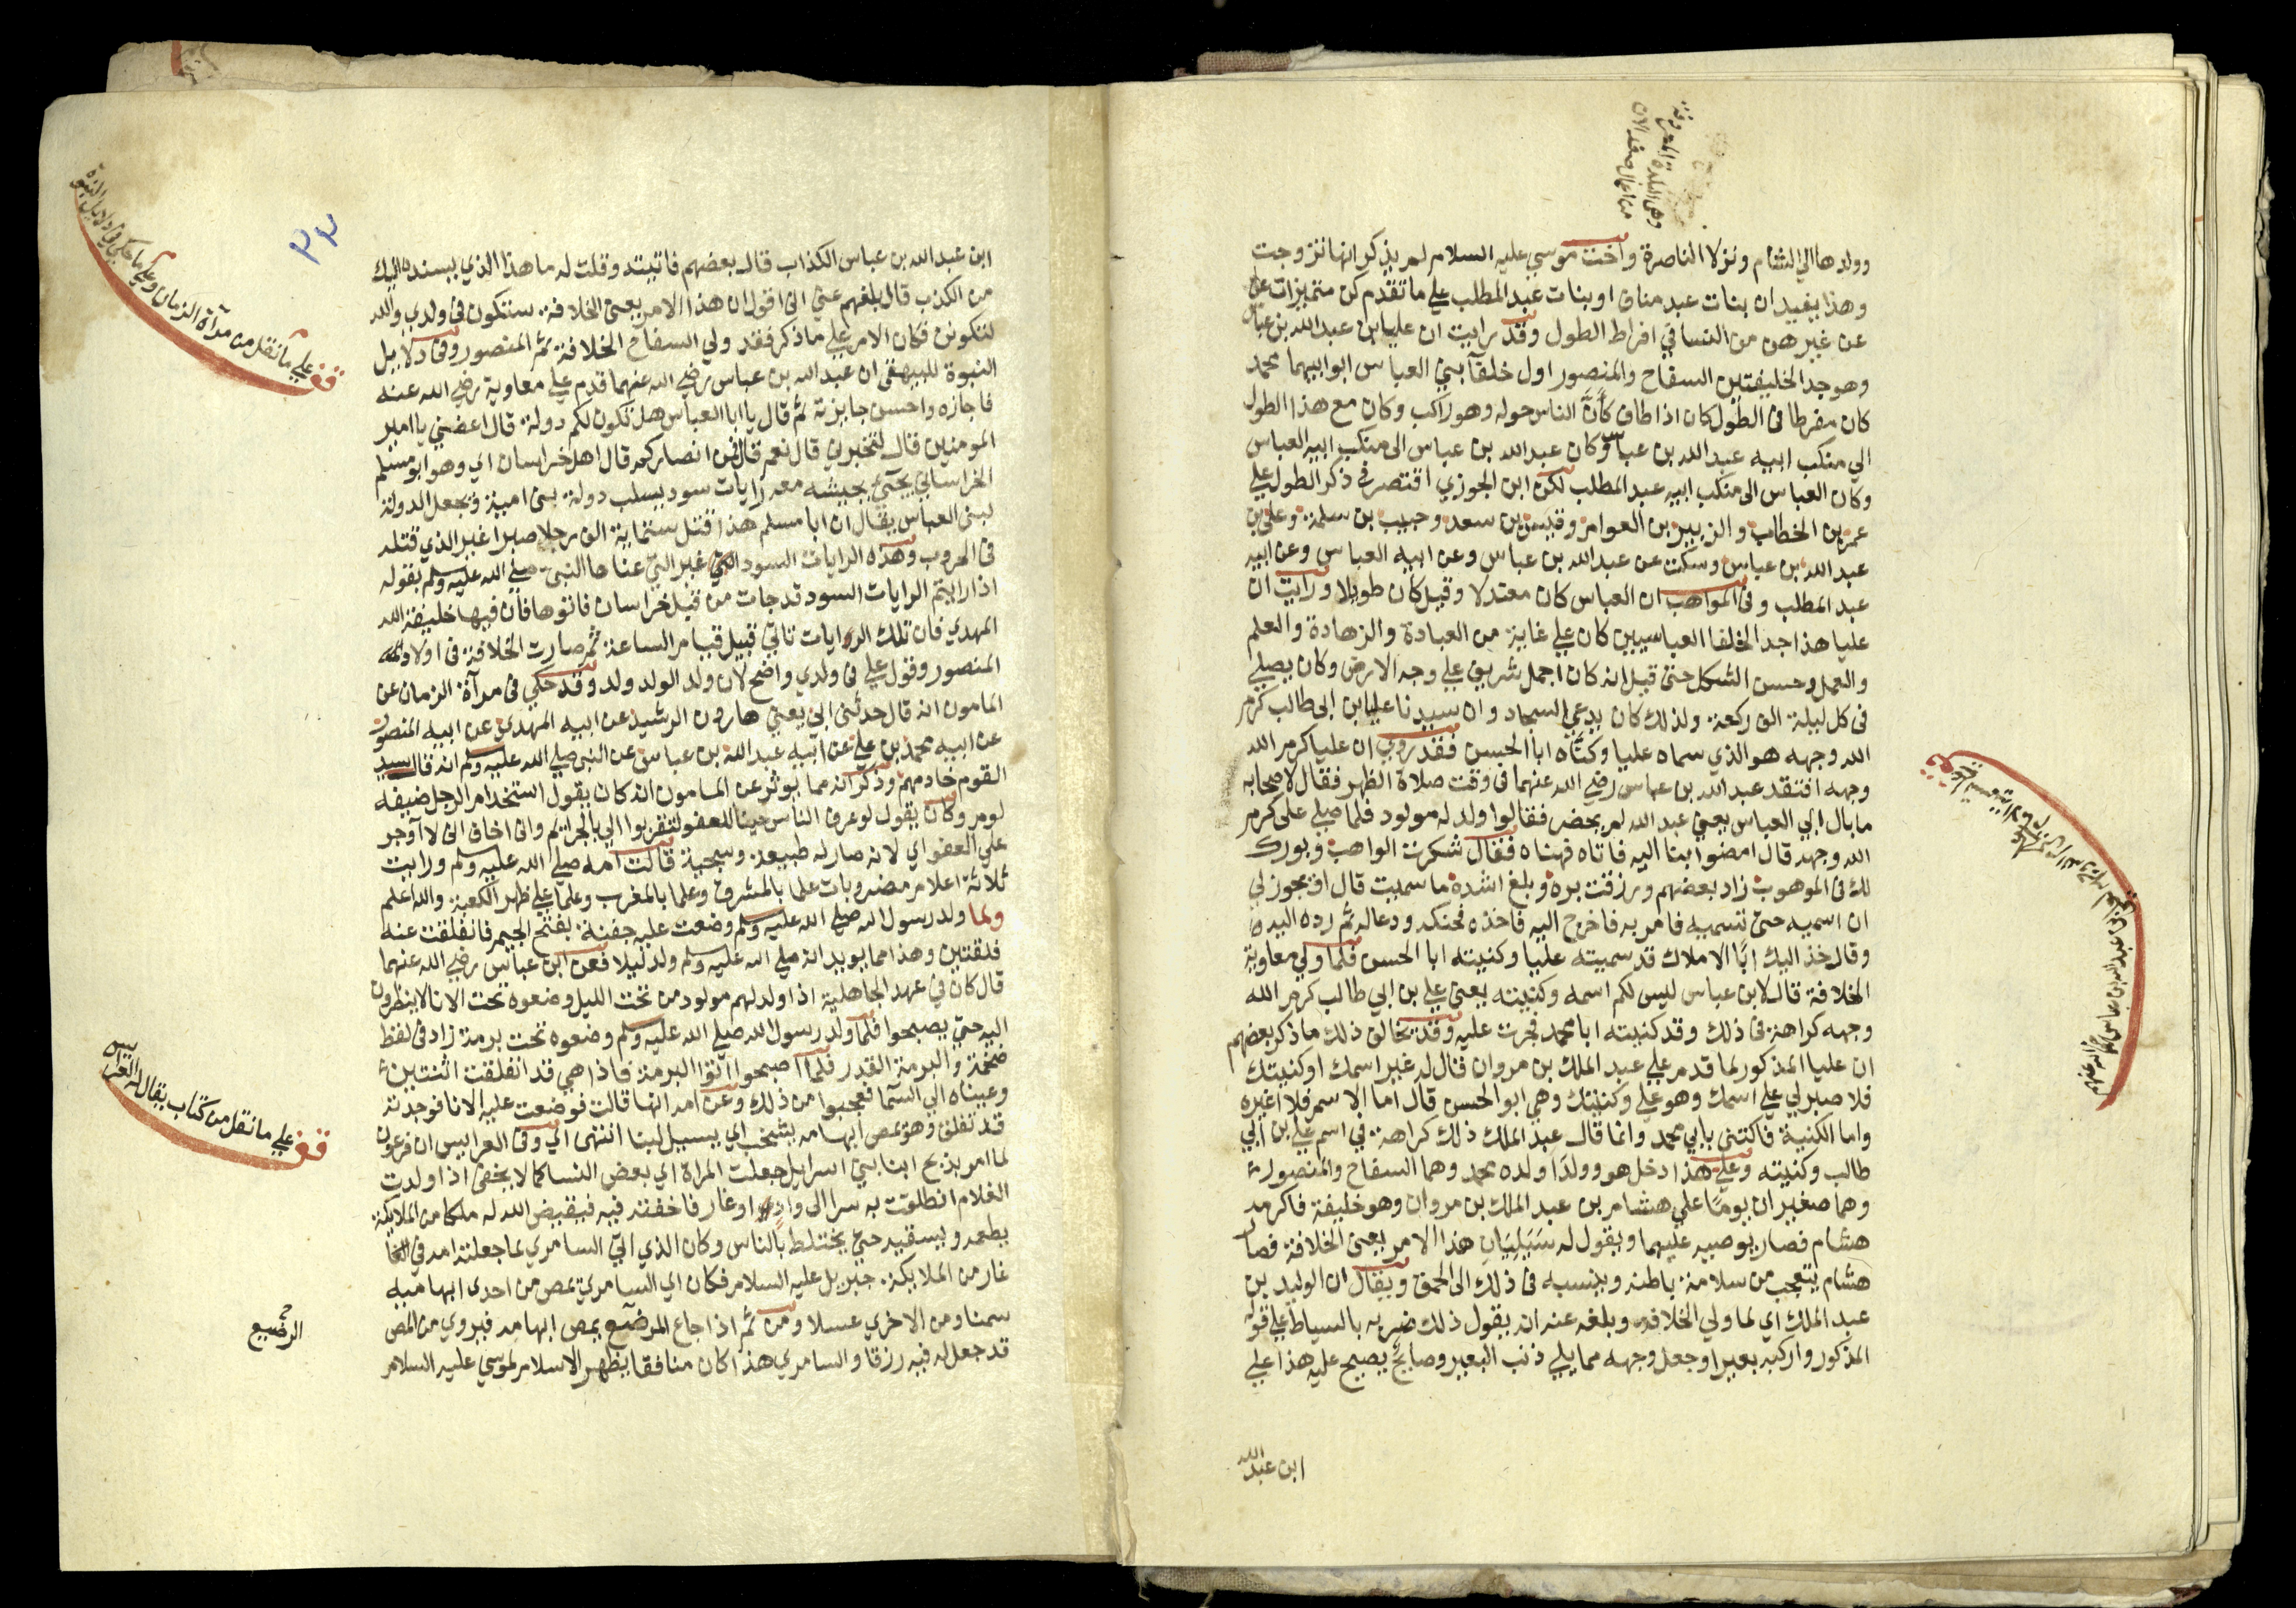 وهي البلدة المعروفة
من اعمال صفد الان
وولدها الي الشام ونزلا الناصرة واخت موسي عليه السلام لم يذكر انها تزوجت
وهذا يفيد ان بنات عبد مناف او بنات عبد المطلب علي ما تقدم كن متميزات علي
عن غيرهن من النسا في افراط الطول وقد رايت ان عليا بن عبد الله بن عباس
وهو جد الخليفتين السفاح والمنصور اول خلفآ بني العباس ابو ابيهما محمد
كان مفرطا في الطول كان اذا طاف كأنَّ الناس حوله وهو راكب وكان مع هذا الطول
الي منكب ابيه عبد الله بن عباس وكان عبد الله بن عباس الى منكب ابيه العباس
وكان العباس الى منكب ابيه عبد المطلب لكن ابن الجوزي اقتصر في ذكر الطول علي
عمر بن الخطاب والزبير بن العوام وقيس بن سعد وحبيب بن سلمة وعلي بن
عبد الله بن عباس وسكت عن عبد الله بن عباس وعن ابيه العباس وعن ابيه
عبد المطلب وفي المواهب ان العباس كان معتدلا وقيل كان طويلا ورايت ان
عليا هذا جد الخلفا العباسيين كان علي غاية من العبادة والزهادة والعلم
والعمل وحسن الشكل حتي قيل انه كان اجمل شريف علي وجه الارض وكان يصلي
في كل ليلة الف ركعة ولذلك كان يدعي السجاد وان سيدنا عليا بن ابي طالب كرم
الله وجهه هو الذي سماه عليا وكنَّاه ابا الحسن فقد روي ان عليا كرم الله
وجهه افتقد عبد الله بن عباس رضي الله عنهما في وقت صلاة الظهر فقال لاصحابه
ما بال ابي العباس يعني عبد الله لم يحضر فقالوا ولد له مولود فلما صلي علي كرم
الله وجهه قال امضوا بنا اليه فاتاه فهناه فقال شكرت الواهب وبورك
لك في الموهوب زاد بعضهم ورزقت بره وبلغ اشده ما سميت قال اويجوز لي
ان اسميه حتي تسميه فامر به فاخرج اليه فاخذه فحنكه ودعا له ثم رده اليه
وقال خذ اليك ابا الاملاك قد سميته عليا وكنيته ابا الحسن فلما ولي معاوية
الخلافة قال لابن عباس ليس لكم اسمه وكنيته يعني علي بن ابي طالب كرم الله
وجهه كراهة في ذلك وقد كنيته ابا محمد فجرت عليه وقد يخالف ذلك ما ذكر بعضهم
ان عليا المذكور لما قدم علي عبد الملك بن مروان قال له غير اسمك او كنيتك
فلا صبر لي علي اسمك وهو علي وكنيتك وهي ابو الحسن قال اما الاسم فلا اغيره
واما الكنية فاكتني بابي محمد وانما قال عبد الملك ذلك كراهة في اسم علي بن ابي
طالب وكنيته وعلي هذا دخل هو وولدا ولده محمد وهما السفاح والمنصور
وهما صغيران يوما علي هشام بن عبد الملك بن مروان وهو خليفة فاكرمه
هشام فصار يوصيه عليهما ويقول له سَيَلِيَانِ هذا الامر يعني الخلافة فصار
هشام يتعجب من سلامة باطنه وينسبه في ذلك الى الحمق ويقال ان الوليد بن
عبد الملك اي لما ولي الخلافة وبلغه عنه انه يقول ذلك ضربه بالسياط علي قوله
المذكور واركبه بعيرا وجعل وجهه مما يلي ذنب البعير وصايح يصيح عليه هذا علي
ابن عبد الله
٣٣
ابن عبد الله بن عباس الكذاب قال بعضهم فاتيته وقلت له ما هذا الذي يسند اليك
من الكذب قال بلغهم عني اني اقول ان هذا الامر يعني الخلافة ستكون في ولدي والله
لتكونن فكان الامر علي ما ذكر فقد ولي السفاح الخلافة ثم المنصور وفي دلايل
النبوة للبيهقي ان عبد الله بن عباس رضي الله عنهما قدم علي معاوية رضي الله عنه
فاجازه واحسن جايزته ثم قال يا ابا العباس هل تكون لكم دولة قال اعفني يا امير
المومنين قال لتخبرني قال نعم قال فمن انصاركم قال اهل خراسان اي وهو ابو مسلم
الخراساني يجيء بجيشه معه رايات سود يسلب دولة بني امية ويجعل الدولة
لبني العباس يقال ان ابا مسلم هذا قتل ستماية الف رجل صبرا غير الذي قتله
في الحروب وهذه الرايات السود غير التي عناها النبي صلي الله عليه وسلم بقوله
اذا رايتم الرايات السود قد جات من قبل خراسان فاتوها فان فيها خليفة الله
المهدي فان تلك الرايات تاتي قبيل قيام الساعة ثم صارت الخلافة في اولاد
المنصور وقول علي في ولدي واضح لان ولد الولد ولد وقد حكي في مرآة الزمان عن
المامون انه قال حدثني ابي يعني هارون الرشيد عن ابيه المهدي عن ابيه المنصور
عن ابيه محمد بن علي عن ابيه عبد الله بن عباس عن النبي صلي الله عليه وسلم انه قال سيد
القوم خادمهم وذكر انه مما يوثر عن المامون انه كان يقول استخدام الرجل ضيفه
لوم وكان يقول لو عرف الناس حبنا للعفو لتقربوا الي بالجرايم واني اخاف اني لا اوجر
علي العفو اي لانه صار له طبيعة وسجية قالت امه صلي الله عليه وسلم ورايت
ثلاثة اعلام مضروبات علما بالمشرق وعلما بالمغرب وعلما علي ظهر الكعبة والله اعلم
ولما ولد رسول الله صلي الله عليه وسلم وضعت عليه جفنة بفتح الجيم فانفلقت عنه
فلقتين وهذا مما يويد انه صلي الله عليه وسلم ولد ليلا فعن ابن عباس رضي الله عنهما
قال كان في عهد الجاهلية اذا ولد لهم مولود من تحت الليل وضعوه تحت الانا لا ينظرون
اليه حتي يصبحوا فلما ولد رسول الله صلي الله عليه وسلم وضعوه تحت برمة زاد في لفظ
ضخمة والبرمة القدر فلما اصبحوا اتوا البرمة فاذا هي قد انفلقت اثنتين
وعيناه الي السما فعجبوا من ذلك وعن امه انها قالت فوضعت عليه الانا فوجدته
قد تفلق وهو يمص ابهامه يشخب اي يسيل لبنا انتهى اي وفي العرايس ان فرعون
لما امر بذبح ابنا بني اسرايل جعلت المراة اي بعض النسا كما لا يخفى اذا ولدت
الغلام انطلقت به سرا الى واد او غار فاخفته فيه فيقيض الله له ملكا من الملايكة
يطعمه ويسقيه حتي يختلط بالناس وكان الذي اتي السامري لما جعلته امه في
غار من الملايكة جبريل عليه السلام فكان اي السامري يمص من احدى ابهاميه
سمنا ومن الاخري عسلا ومن ثم اذا جاع المرضع يمص ابهامه فيروي من المص
قد جعل له فيه رزقا والسامري هذا كان منافقا يظهر الاسلام لموسي عليه السلام
قف علي ما نقل من مرآة الزمان وعلي ما حكي في دلايل النبوة
قف علي ما نقل من كتاب يقال له العرايس
الرضيع